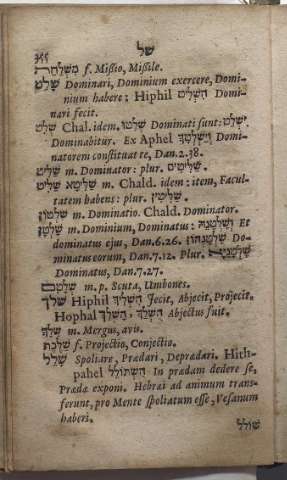 של
משלחת f. Missio, Missile.
שלט Dominari, Dominium exercere, Domi-
nium habere; Hiphil השליט Domi-
nari fecit.
שלט Chal. idem. שלטו Dominati sunt: ישלט
Dominabitur. Ex Aphel Domi-
natorem constituat te, Dan. 2.38.
שליט m. Dominator: plur. שליטים.
שליט שליטא m. Chald. idem: item, Facul-
tatem habens: plur. שליטין.
שלטון m. Dominatio. Chald. Dominator.
שלטן m. Dominium, Dominatus: Et
dominatus ejus, Dan. 6.26. Do-
minatus eorum, Dan. 7.12. Plur.
Dominatus, Dan. 7.27.
שלטים m. p. Scuta, Umbones.
שלך Hiphil השליך Jecit, Abjecit, Projecit.
Hophal השלך Abjectus fuit.
שלך m. Mergus, avis.
שלכת f. Projectio, Conjectio.
שלל Spoliare, Prædari, Deprædari. Hith-
pahel השתולל In prædam dedere se,
Prædæ exponi. Hebræi ad animum trans-
ferunt, pro Mente spoliatum esse, Vesanum
haberi.
שולל